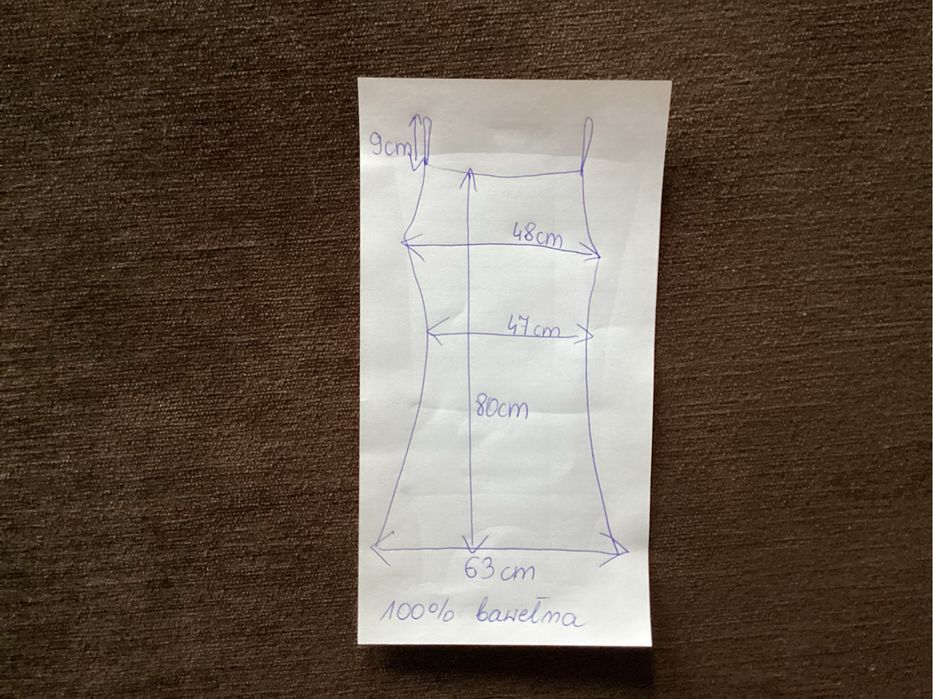 9cm
48cm
47cm
80cm
63cm
100% bawełna